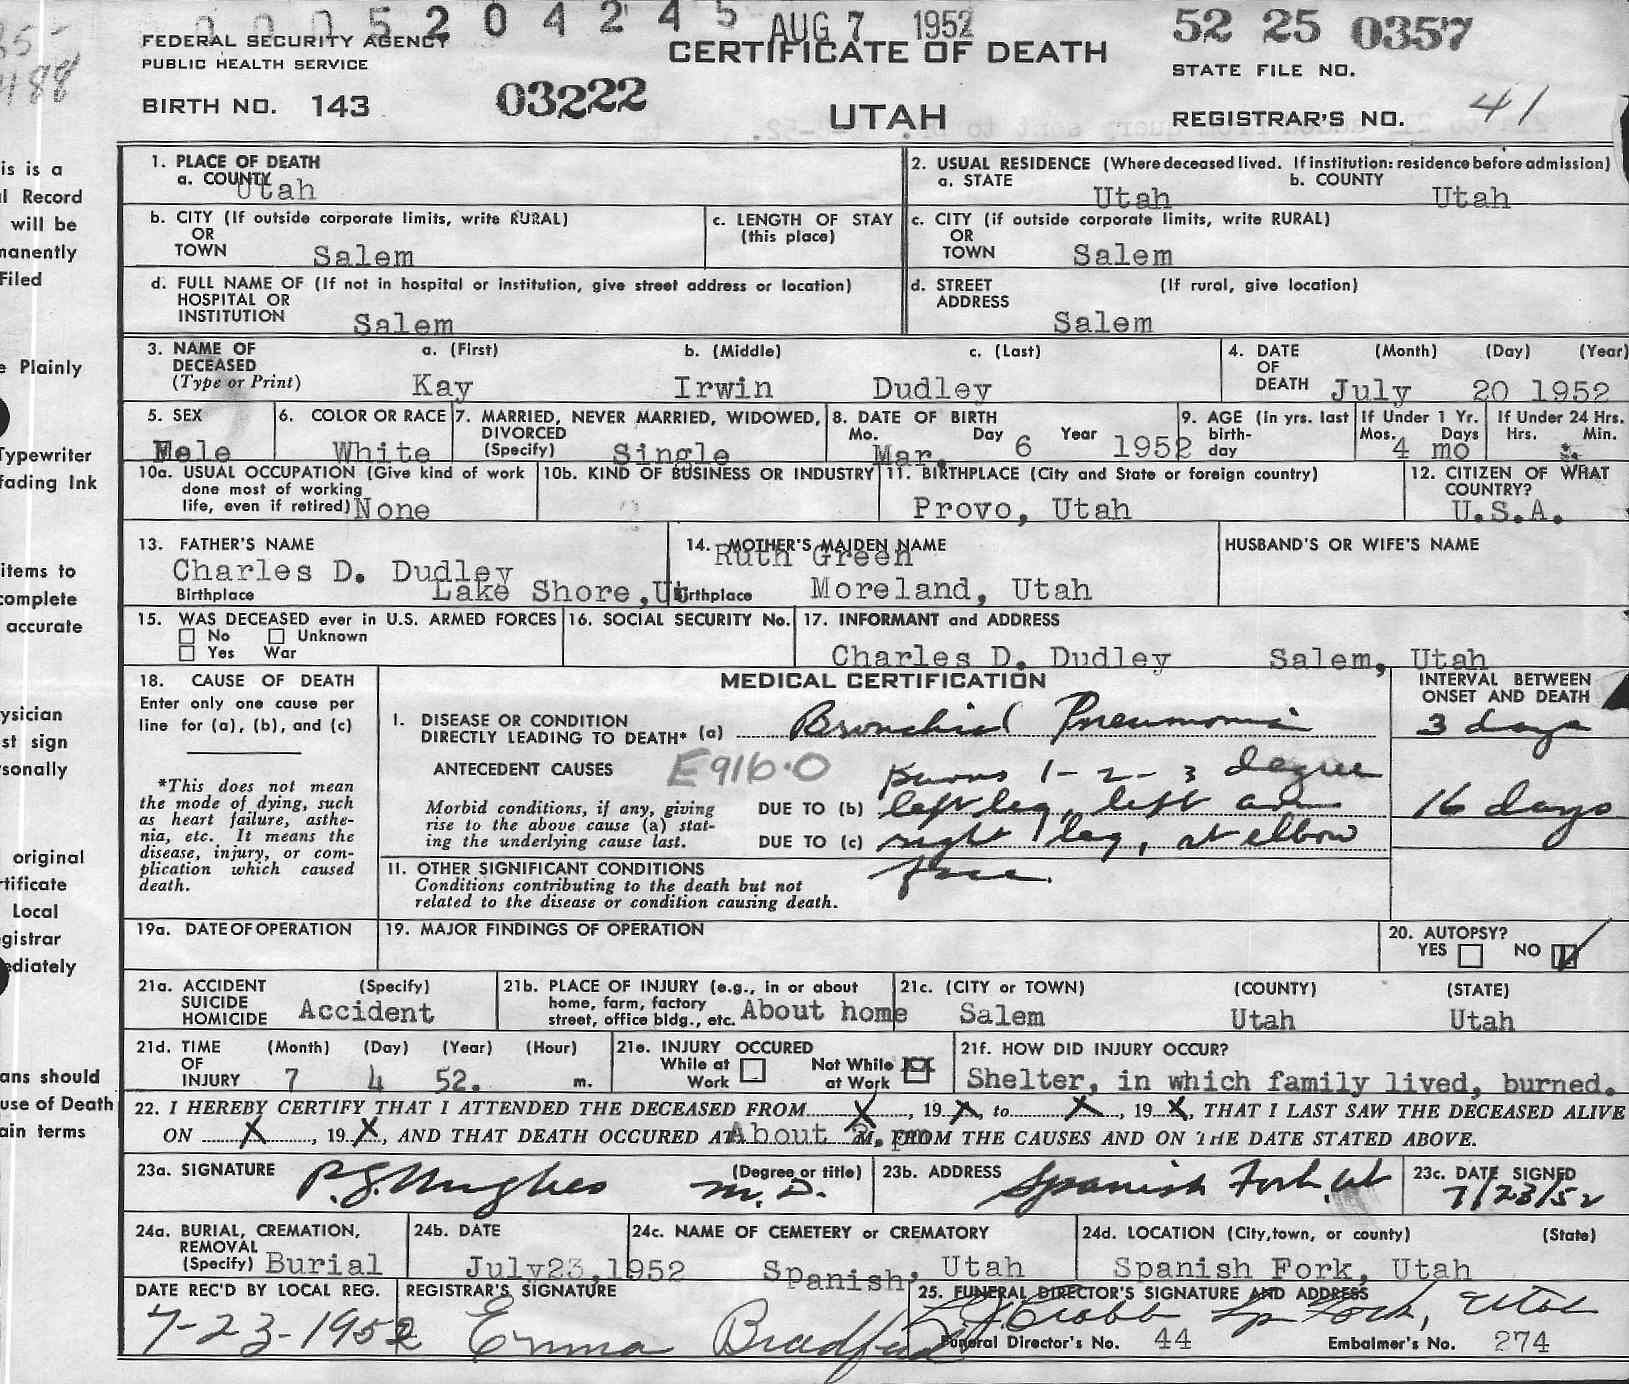 35-
488
0005204245 AUG 7 1952 52 25 0357
FEDERAL SECURITY AGENCY
PUBLIC HEALTH SERVICE
CERTIFICATE OF DEATH
STATE FILE NO.
BIRTH NO. 143 03222 UTAH REGISTRAR'S NO. 41
1. PLACE OF DEATH
a. COUNTY Utah
2. USUAL RESIDENCE (Where deceased lived. If institution: residence before admission)
a. STATE Utah b. COUNTY Utah
b. CITY (If outside corporate limits, write RURAL)
OR
TOWN Salem
c. LENGTH OF STAY
(this place)
c. CITY (if outside corporate limits, write RURAL)
OR
TOWN Salem
d. FULL NAME OF (If not in hospital or institution, give street address or location)
HOSPITAL OR
INSTITUTION Salem
d. STREET (If rural, give location)
ADDRESS
Salem
3. NAME OF a. (First) b. (Middle) c. (Last)
DECEASED
(Type or Print) Kay Irwin Dudley
4. DATE (Month) (Day) (Year)
OF
DEATH July 20 1952
5. SEX
Mele
6. COLOR OR RACE
White
7. MARRIED, NEVER MARRIED, WIDOWED,
DIVORCED
(Specify) Single
8. DATE OF BIRTH
Mo. Day Year
Mar. 6 1952
9. AGE (in yrs. last
birth-
day
If Under 1 Yr.
Mos. Days
4 mo
If Under 24 Hrs.
Hrs. Min.
10a. USUAL OCCUPATION (Give kind of work
done most of working
life, even if retired) None
10b. KIND OF BUSINESS OR INDUSTRY
11. BIRTHPLACE (City and State or foreign country)
Provo, Utah
12. CITIZEN OF WHAT
COUNTRY?
U.S.A.
13. FATHER'S NAME
Charles D. Dudley
Birthplace Lake Shore,Ut
14. MOTHER'S MAIDEN NAME
Ruth Green
Birthplace Moreland, Utah
HUSBAND'S OR WIFE'S NAME
15. WAS DECEASED ever in U.S. ARMED FORCES
No Unknown
Yes War
16. SOCIAL SECURITY No.
17. INFORMANT and ADDRESS
Charles D. Dudley Salem, Utah
18. CAUSE OF DEATH
Enter only one cause per
line for (a), (b), and (c)
*This does not mean
the mode of dying, such
as heart failure, asthe-
nia, etc. It means the
disease, injury, or com-
plication which caused
death.
MEDICAL CERTIFICATION
INTERVAL BETWEEN
ONSET AND DEATH
I. DISEASE OR CONDITION
DIRECTLY LEADING TO DEATH* (a) Bronchial Pneumonia 3 days
ANTECEDENT CAUSES E916.0 Burns 1-2-3 degree
Morbid conditions, if any, giving
rise to the above cause (a) stat-
ing the underlying cause last.
DUE TO (b) left leg, left arm 16 days
DUE TO (c) right leg, at elbow
face.
II. OTHER SIGNIFICANT CONDITIONS
Conditions contributing to the death but not
related to the disease or condition causing death.
19a. DATE OF OPERATION
19. MAJOR FINDINGS OF OPERATION
20. AUTOPSY?
YES NO
21a. ACCIDENT (Specify)
SUICIDE
HOMICIDE Accident
21b. PLACE OF INJURY (e.g., in or about
home, farm, factory
street, office bldg., etc. About home
21c. (CITY or TOWN) (COUNTY) (STATE)
Salem Utah Utah
21d. TIME (Month) (Day) (Year) (Hour)
OF
INJURY 7 4 52. m.
21e. INJURY OCCURED
While at Work Not While at Work
21f. HOW DID INJURY OCCUR?
Shelter, in which family lived, burned.
22. I HEREBY CERTIFY THAT I ATTENDED THE DECEASED FROM X, 19X, to X, 19X, THAT I LAST SAW THE DECEASED ALIVE
ON X, 19X, AND THAT DEATH OCCURED AT About M. pm FROM THE CAUSES AND ON THE DATE STATED ABOVE.
23a. SIGNATURE (Degree or title)
P.G. Hughes M.D.
23b. ADDRESS Spanish Fork, Ut
23c. DATE SIGNED
7/23/52
24a. BURIAL, CREMATION,
REMOVAL
(Specify) Burial
24b. DATE
July23,1952
24c. NAME OF CEMETERY or CREMATORY
Spanish, Utah
24d. LOCATION (City,town, or county) (State)
Spanish Fork, Utah
DATE REC'D BY LOCAL REG.
7-23-1952
REGISTRAR'S SIGNATURE
Emma Bradford
25. FUNERAL DIRECTOR'S SIGNATURE AND ADDRESS
Crabb Sp Fork, Utah
Funeral Director's No. 44 Embalmer's No. 274
is is a
l Record
will be
manently
Filed
e Plainly
Typewriter
fading Ink
items to
complete
accurate
ysician
st sign
rsonally
original
rtificate
Local
gistrar
ediately
ans should
use of Death
ain terms